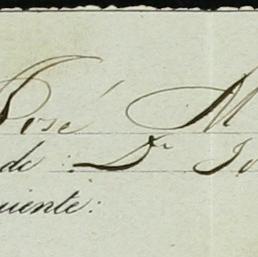 José M
de: Dr Jo
uiente: